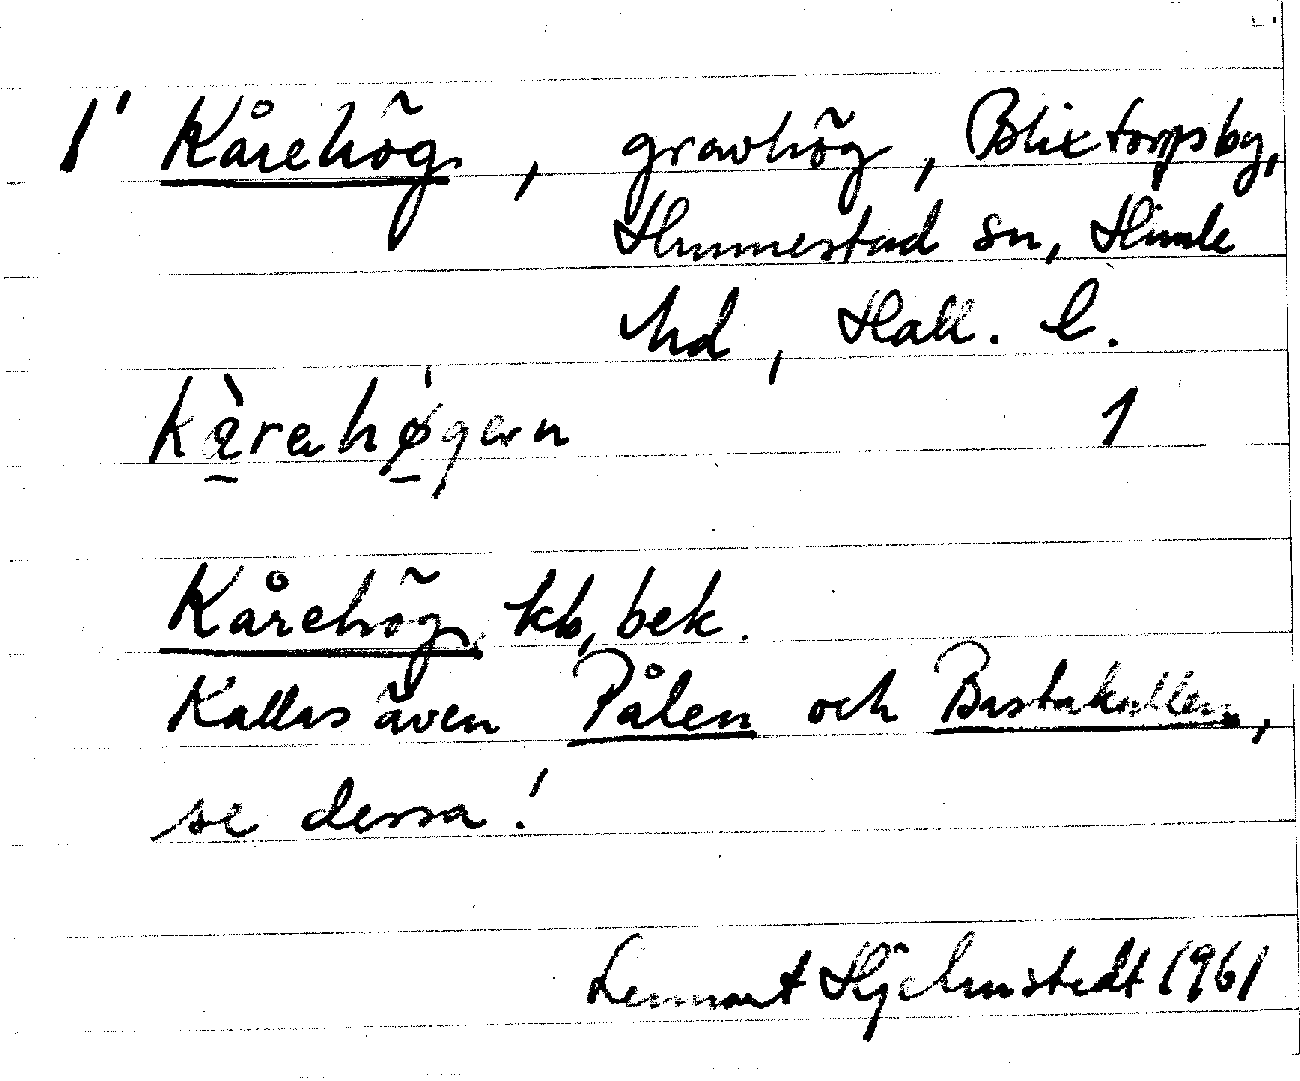 1' Kårehög, gravhög, Blixtorps by,
Hunnestad sn, Himle
hd, Hall. l.
kàrahø̀gən 1
Kårehög, kb, bek.
Kallas även Pålen och Bastakullen,
se dessa!
Lennart Hjelmstedt 1961